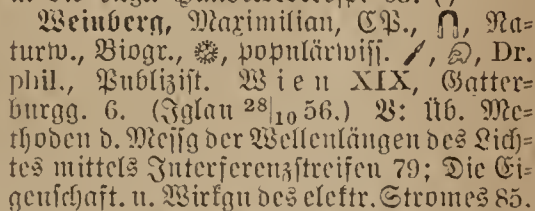 Weinberg, Maximilian, CP., Na=
turw., Biogr., populärwiss. Dr.
phil., Publizist. Wien XIX, Gatter=
burgg. 6. (Iglau 28|10 56.) V: Üb. Me=
thoden d. Messg der Wellenlängen des Lich=
tes mittels Interferenzstreifen 79; Die Ei=
genschaft. u. Wirkgn des elektr. Stromes 85.